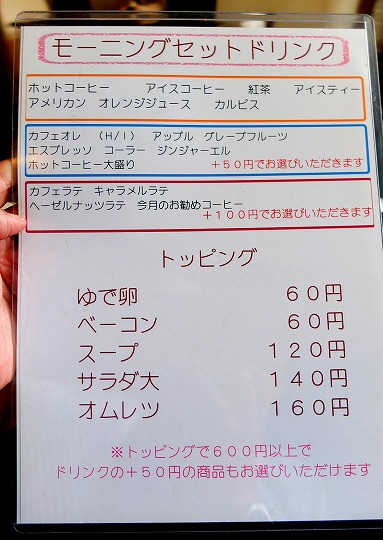 モーニングセットドリンク
ホットコーヒー アイスコーヒー 紅茶 アイスティー
アメリカン オレンジジュース カルピス
カフェオレ （H／I） アップル グレープフルーツ
エスプレッソ コーラー ジンジャーエル
ホットコーヒー大盛り ＋５０円でお選びいただきます
カフェラテ キャラメルラテ
ヘーゼルナッツラテ 今月のお勧めコーヒー
＋１００円でお選びいただきます
トッピング
ゆで卵 ６０円
ベーコン ６０円
スープ １２０円
サラダ大 １４０円
オムレツ １６０円
※トッピングで６００円以上で
ドリンクの＋５０円の商品もお選びいただけます